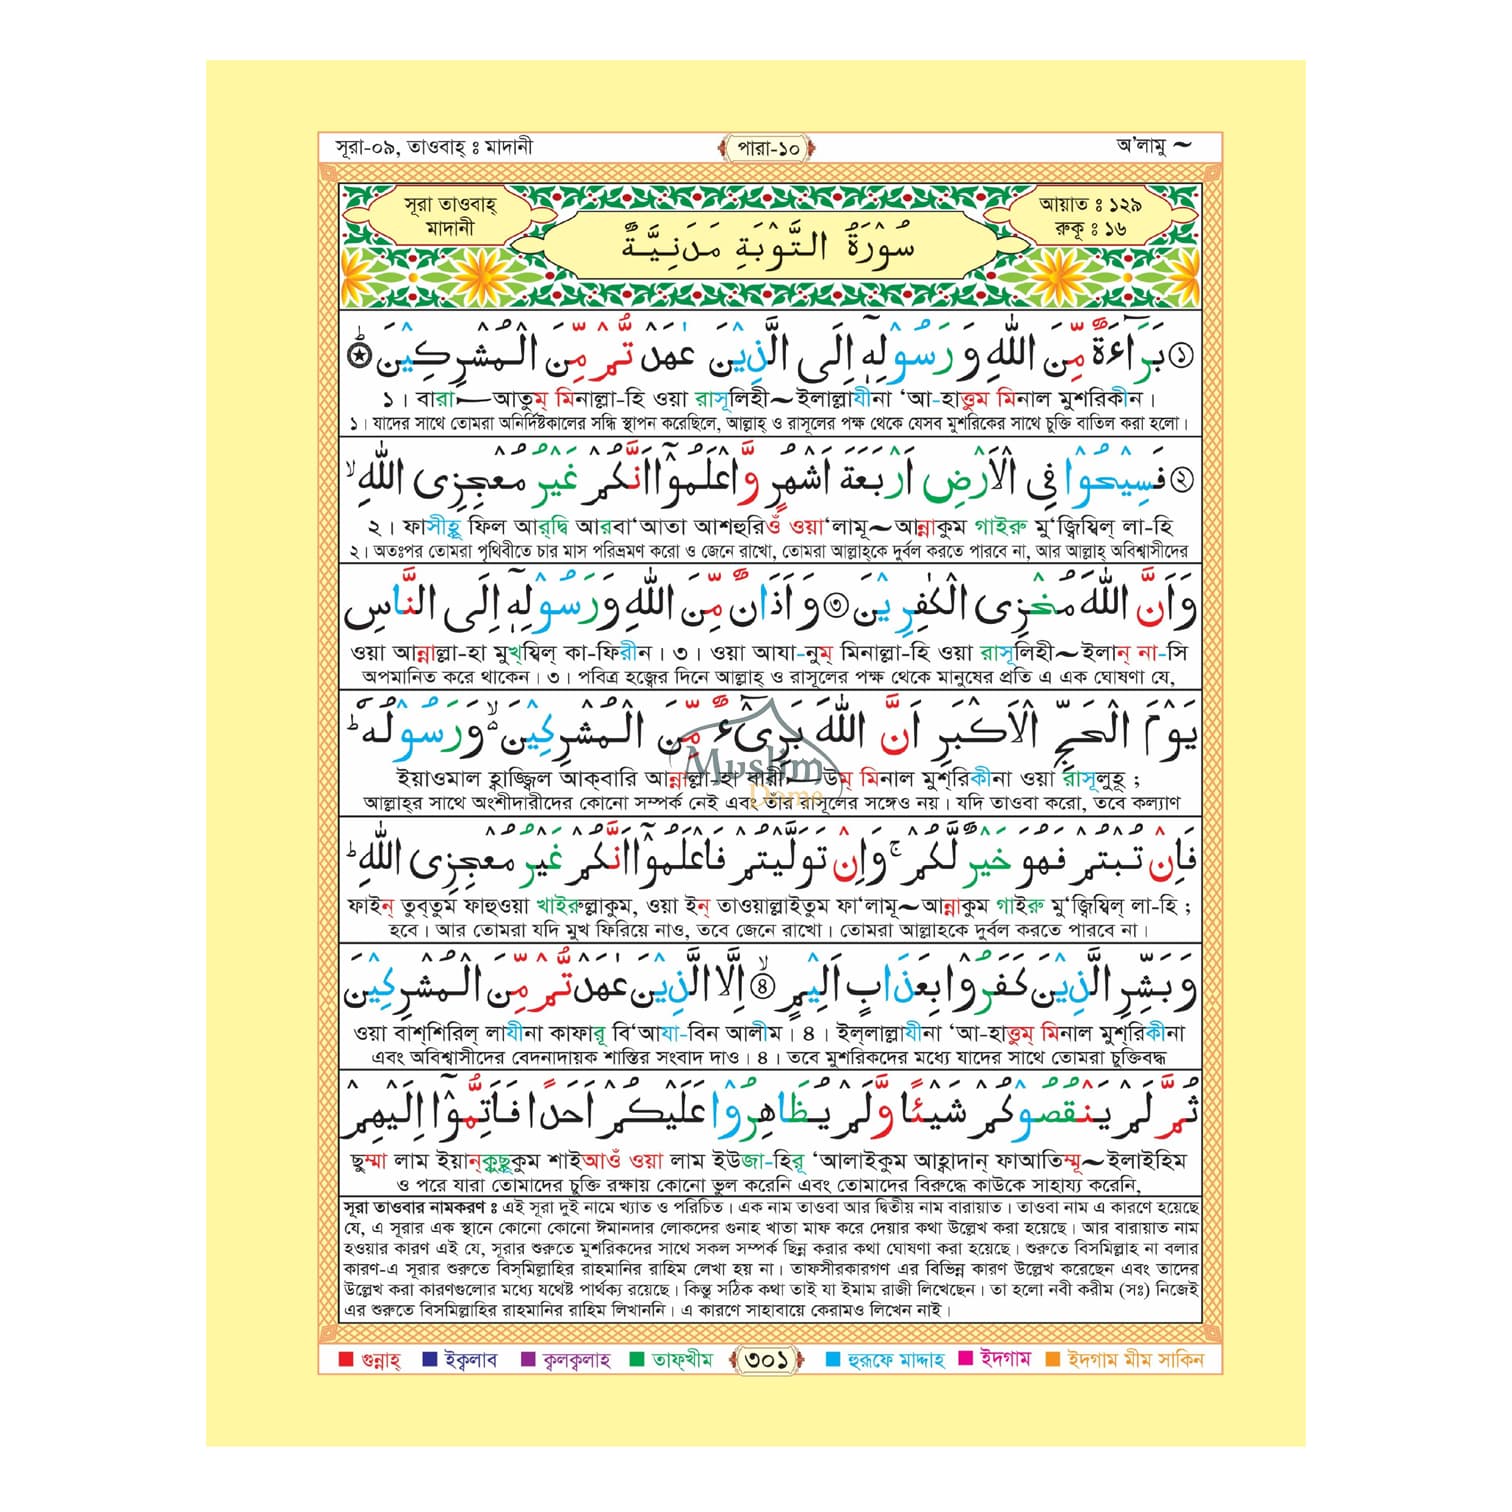 সূরা-০৯, তাওবাহ্ ঃ মাদানী
পারা-১০
অ'লামু ~
সূরা তাওবাহ্
মাদানী
سُوْرَةُ التَّوْبَةِ مَدَنِيَّةٌ
আয়াত ঃ ১২৯
রুকূ ঃ ১৬
① بَرَآءَةٌ مِّنَ اللّٰهِ وَرَسُوْلِهٖٓ اِلَى الَّذِيْنَ عٰهَدْتُّمْ مِّنَ الْمُشْرِكِيْنَ ؕ
১। বারা—আতুম্ মিনাল্লা-হি ওয়া রাসূলিহী~ইলাল্লাযীনা ‘আ-হাত্তুম মিনাল মুশরিকীন।
১। যাদের সাথে তোমরা অনির্দিষ্টকালের সন্ধি স্থাপন করেছিলে, আল্লাহ্ ও রাসূলের পক্ষ থেকে যেসব মুশরিকের সাথে চুক্তি বাতিল করা হলো।
② فَسِيْحُوْا فِى الْاَرْضِ اَرْبَعَةَ اَشْهُرٍ وَّاعْلَمُوْٓا اَنَّكُمْ غَيْرُ مُعْجِزِى اللّٰهِ ۙ
২। ফাসীহূ ফিল আর্‌দ্বি আরবা‘আতা আশহুরিওঁ ওয়া‘লামূ~আন্নাকুম গাইরু মু‘জ্বিযিল লা-হি
২। অতঃপর তোমরা পৃথিবীতে চার মাস পরিভ্রমণ করো ও জেনে রাখো, তোমরা আল্লাহ্‌কে দুর্বল করতে পারবে না, আর আল্লাহ্ অবিশ্বাসীদের
وَاَنَّ اللّٰهَ مُخْزِى الْكٰفِرِيْنَ ③ وَاَذَانٌ مِّنَ اللّٰهِ وَرَسُوْلِهٖٓ اِلَى النَّاسِ
ওয়া আন্নাল্লা-হা মুখ্‌যিল্ কা-ফিরীন। ৩। ওয়া আযা-নুম্ মিনাল্লা-হি ওয়া রাসূলিহী~ইলান্ না-সি
অপমানিত করে থাকেন। ৩। পবিত্র হজ্বের দিনে আল্লাহ্ ও রাসূলের পক্ষ থেকে মানুষের প্রতি এ এক ঘোষণা যে,
يَوْمَ الْحَجِّ الْاَكْبَرِ اَنَّ اللّٰهَ بَرِىْٓءٌ مِّنَ الْمُشْرِكِيْنَ ۙ۬ وَرَسُوْلُهٗ ؕ
ইয়াওমাল হ্বাজ্জ্বিল আক্‌বারি আন্নাল্লা-হা বারী—উম্ মিনাল মুশ্‌রিকীনা ওয়া রাসূলুহূ ;
আল্লাহ্‌র সাথে অংশীদারীদের কোনো সম্পর্ক নেই এবং তাঁর রাসূলের সঙ্গেও নয়। যদি তাওবা করো, তবে কল্যাণ
Muslim
Dome
فَاِنْ تُبْتُمْ فَهُوَ خَيْرٌ لَّكُمْ ۚ وَاِنْ تَوَلَّيْتُمْ فَاعْلَمُوْٓا اَنَّكُمْ غَيْرُ مُعْجِزِى اللّٰهِ ؕ
ফাইন্ তুব্‌তুম ফাহুওয়া খাইরুল্লাকুম, ওয়া ইন্ তাওয়াল্লাইতুম ফা‘লামূ~আন্নাকুম গাইরু মু‘জ্বিযিল লা-হি ;
হবে। আর তোমরা যদি মুখ ফিরিয়ে নাও, তবে জেনে রাখো। তোমরা আল্লাহকে দুর্বল করতে পারবে না।
وَبَشِّرِ الَّذِيْنَ كَفَرُوْا بِعَذَابٍ اَلِيْمٍ ④ۙ اِلَّا الَّذِيْنَ عٰهَدْتُّمْ مِّنَ الْمُشْرِكِيْنَ
ওয়া বাশ্‌শিরিল্ লাযীনা কাফারূ বি‘আযা-বিন আলীম। ৪। ইল্‌লাল্লাযীনা ‘আ-হাত্তুম্ মিনাল মুশ্‌রিকীনা
এবং অবিশ্বাসীদের বেদনাদায়ক শাস্তির সংবাদ দাও। ৪। তবে মুশরিকদের মধ্যে যাদের সাথে তোমরা চুক্তিবদ্ধ
ثُمَّ لَمْ يَنْقُصُوْكُمْ شَيْـًٔا وَّلَمْ يُظَاهِرُوْا عَلَيْكُمْ اَحَدًا فَاَتِمُّوْٓا اِلَيْهِمْ
ছুম্মা লাম ইয়ান্‌কুছূকুম শাইআওঁ ওয়া লাম ইউজা-হিরূ ‘আলাইকুম আহ্বাদান্ ফাআতিম্মূ~ইলাইহিম
ও পরে যারা তোমাদের চুক্তি রক্ষায় কোনো ভুল করেনি এবং তোমাদের বিরুদ্ধে কাউকে সাহায্য করেনি,
সূরা তাওবার নামকরণ ঃ এই সূরা দুই নামে খ্যাত ও পরিচিত। এক নাম তাওবা আর দ্বিতীয় নাম বারায়াত। তাওবা নাম এ কারণে হয়েছে
যে, এ সূরার এক স্থানে কোনো কোনো ঈমানদার লোকদের গুনাহ খাতা মাফ করে দেয়ার কথা উল্লেখ করা হয়েছে। আর বারায়াত নাম
হওয়ার কারণ এই যে, সূরার শুরুতে মুশরিকদের সাথে সকল সম্পর্ক ছিন্ন করার কথা ঘোষণা করা হয়েছে। শুরুতে বিসমিল্লাহ না বলার
কারণ-এ সূরার শুরুতে বিস্‌মিল্লাহির রাহমানির রাহিম লেখা হয় না। তাফসীরকারগণ এর বিভিন্ন কারণ উল্লেখ করেছেন এবং তাদের
উল্লেখ করা কারণগুলোর মধ্যে যথেষ্ট পার্থক্য রয়েছে। কিন্তু সঠিক কথা তাই যা ইমাম রাজী লিখেছেন। তা হলো নবী করীম (সঃ) নিজেই
এর শুরুতে বিসমিল্লাহির রাহমানির রাহিম লিখাননি। এ কারণে সাহাবায়ে কেরামও লিখেন নাই।
গুন্নাহ্ ইক্বলাব ক্বলক্বলাহ তাফ্‌খীম ৩০১ হুরূফে মাদ্দাহ ইদগাম ইদগাম মীম সাকিন